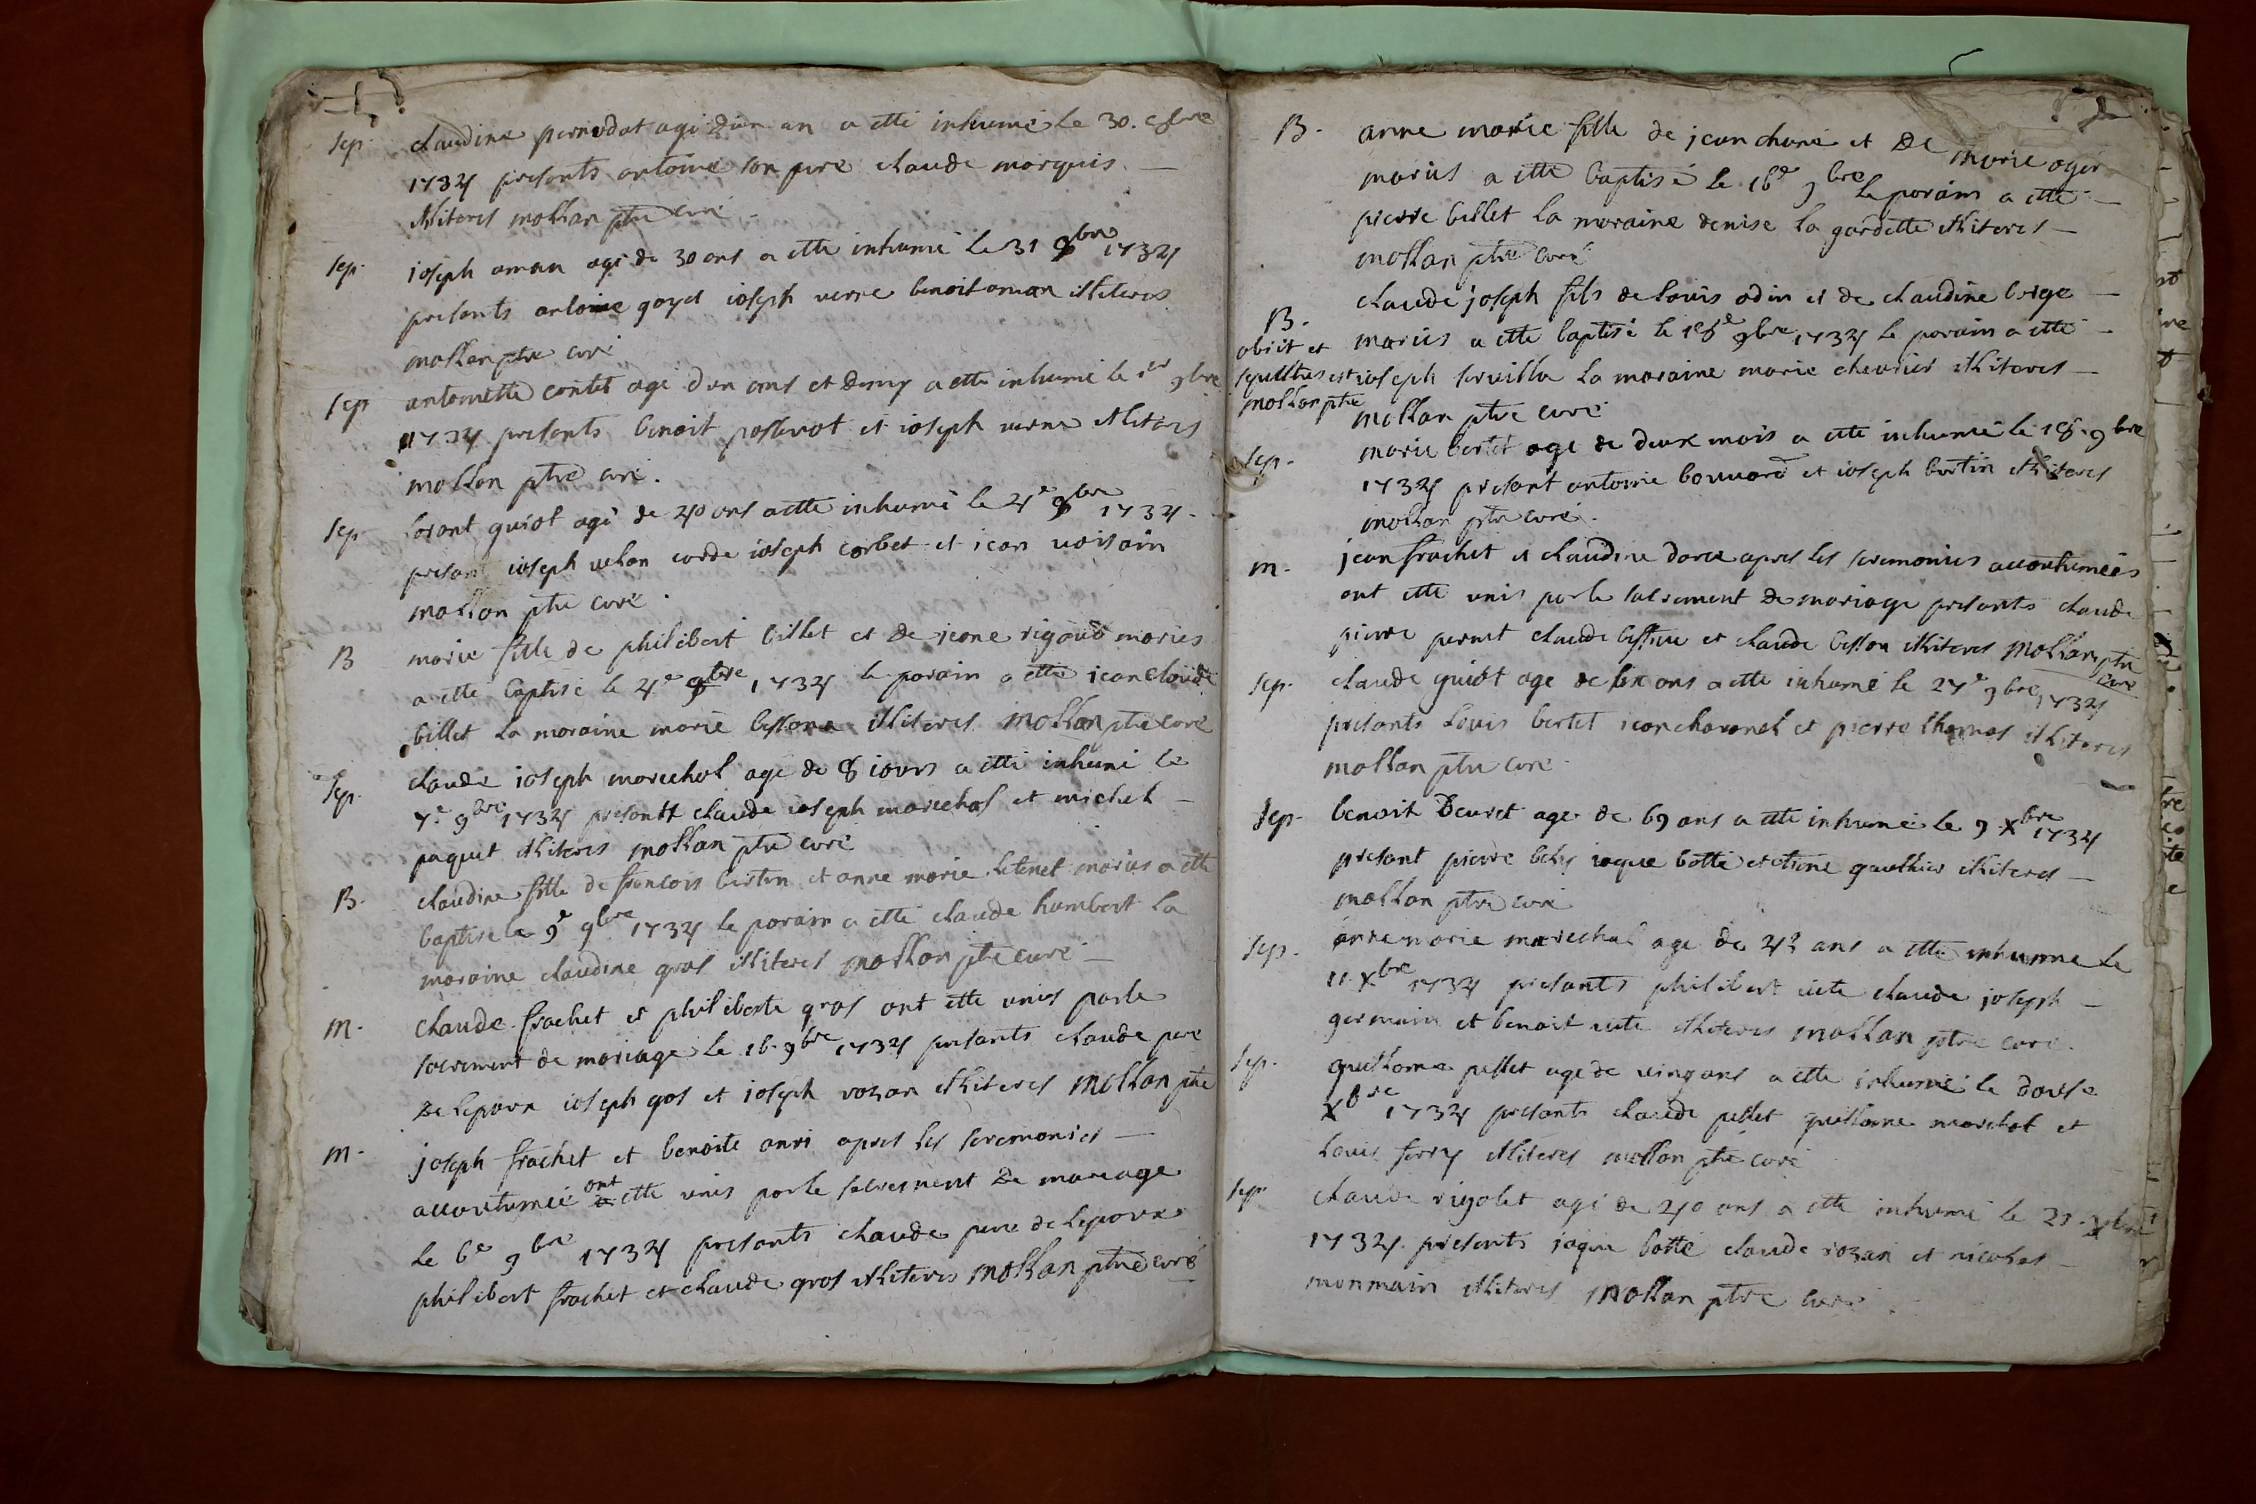 Sep. claudine pernodat agé d'un an a etté inhumé le 30. 8bre
1734 presents antoine son pere claude morquis —
illiteres mollan ptre curé
Sep. ioseph aman agé de 30 ans a etté inhumé le 31 8bre 1734
presents antoine goyet ioseph verne benoit aman illiteres
mollan ptre curé
Sep antoinette contet agé d'un ans et demy a etté inhumé le 1er 9bre
1734 presents benoit et ioseph verne illiteres
mollan ptre curé.
Sep lorant guiot agé de 40 ans a etté inhumé le 4e 9bre 1734.
presant ioseph velon corde ioseph corbet et jean voisain
mollan ptre curé.
B marie fille de philibert billet et de jeane rigaud mariés
a etté baptisé le 4e 9bre 1734 le parain a etté jean claude
billet la moraine marie bessona illiteres mollan ptre curé
Sep. claude ioseph marechal agé de 8 iours a etté inhumé le
7e 9bre 1734 presantt claude ioseph marechal et michel —
paquet illiteres mollan ptre curé
B. claudine fille de francois bertin et anne marie letenet mariés a etté
baptisé le 9e 9bre 1734 le parain a etté claude humbert la
moraine claudine gros illiteres mollan ptre curé —
M. claude frachet et philiberte gros ont etté unis par le
sacrement de mariage le 16. 9bre 1734 presants claude pere
de lepoux ioseph gos et ioseph rozan illiteres mollan ptre
M. joseph frachet et benoite anri apres les seremonies —
accoutumée ont etté unis par le sacrement de mariage
le 6e 9bre 1734 presants claude pere de lepoux
philibert frachet et claude gros illiteres mollan ptre curé
B. anne marie fille de jean chané et de marie ogier
mariés a etté baptisé le 16e 9bre le parain a etté —
pierre billet la moraine denise la gardette illiteres —
mollan ptre curé
B. claude joseph fils de louis odin et de claudine berge —
obiit et mariés a etté baptisé le 18e 9bre 1734 le parain a etté —
sepultus est ioseph servilla la moraine marie chevrier illiteres —
mollan ptre mollan ptre curé
Sep. marie bertet agé de deux mois a etté inhumé le 18. 9bre
1734 presant antoine bonnard et ioseph bertin illiteres
mollan ptre curé.
M. jean frachet et claudine dorer apres les seremonies accoutumées
ont etté unis par le sacrement de mariage presants claude
pierre pernet claude et claude besson illiteres mollan ptre curé
Sep. claude guiot agé de six ans a etté inhumé le 27e 9bre 1734
presants louis bertet jean charonel et pierre thomas illiteres
mollan ptre curé.
Sep. benoit Deuret agé de 69 ans a etté inhumé le 9 Xbre 1734
presant pierre iaque botté et etiene gauthier illiteres —
mollan ptre curé
Sep. anne marie marechal agé de 42 ans a etté inhumé le
11. Xbre 1734 presants philibert claude joseph —
germain et benoit illiteres mollan ptre curé.
Sep. guillome pellet agé de ving ans a etté inhumé le douse
Xbre 1734 presants claude pellet guillome et
louis ferry illiteres mollan ptre curé
Sep claude rigolet agé de 40 ans a etté inhumé le 29. Xbre
1734. presents jaque botté claude rozan et nicolas —
monmain illiteres mollan ptre curé.